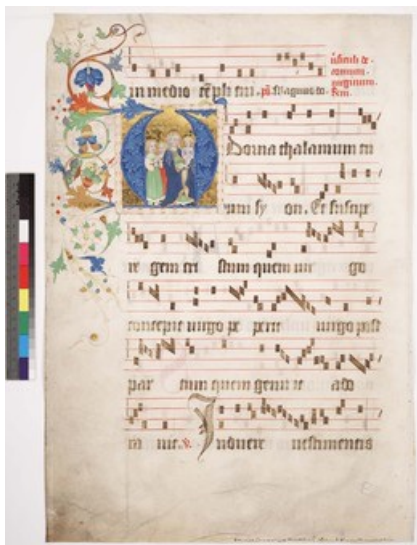 in medio
A dorna thalamum tu
um sy on. Et suscipe
re gem cri stum quem uir go
concepit uirgo pe perit uirgo post
par tum quem genuit ado
ra uit. Induere uestimentis